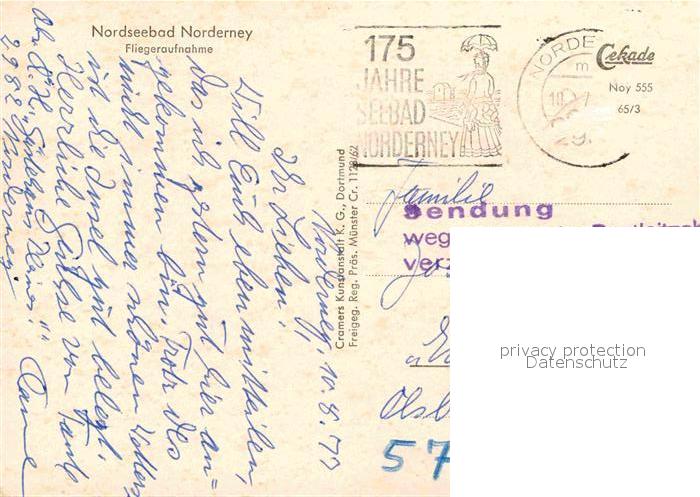 Nordseebad Norderney
Fliegeraufnahme
175
JAHRE
SEEBAD
NORDERNEY
NORDE
Cekade
Noy 555
65/3
Cramers Kunstanstalt K. G., Dortmund
Freigeg. Reg. Präs. Münster Cr. 1128/62
Norderney, 10.8.72
Ihr Lieben,
Will Euch eben mitteilen,
das ich gestern gut hier an=
gekommen bin. Trotz des
nicht immer schönen Wetters
ist die Insel gut belegt.
Herzliche Grüsse von Tante
2982 Norderney
Familie
Sendung
weg
verz
57
privacy protection
Datenschutz